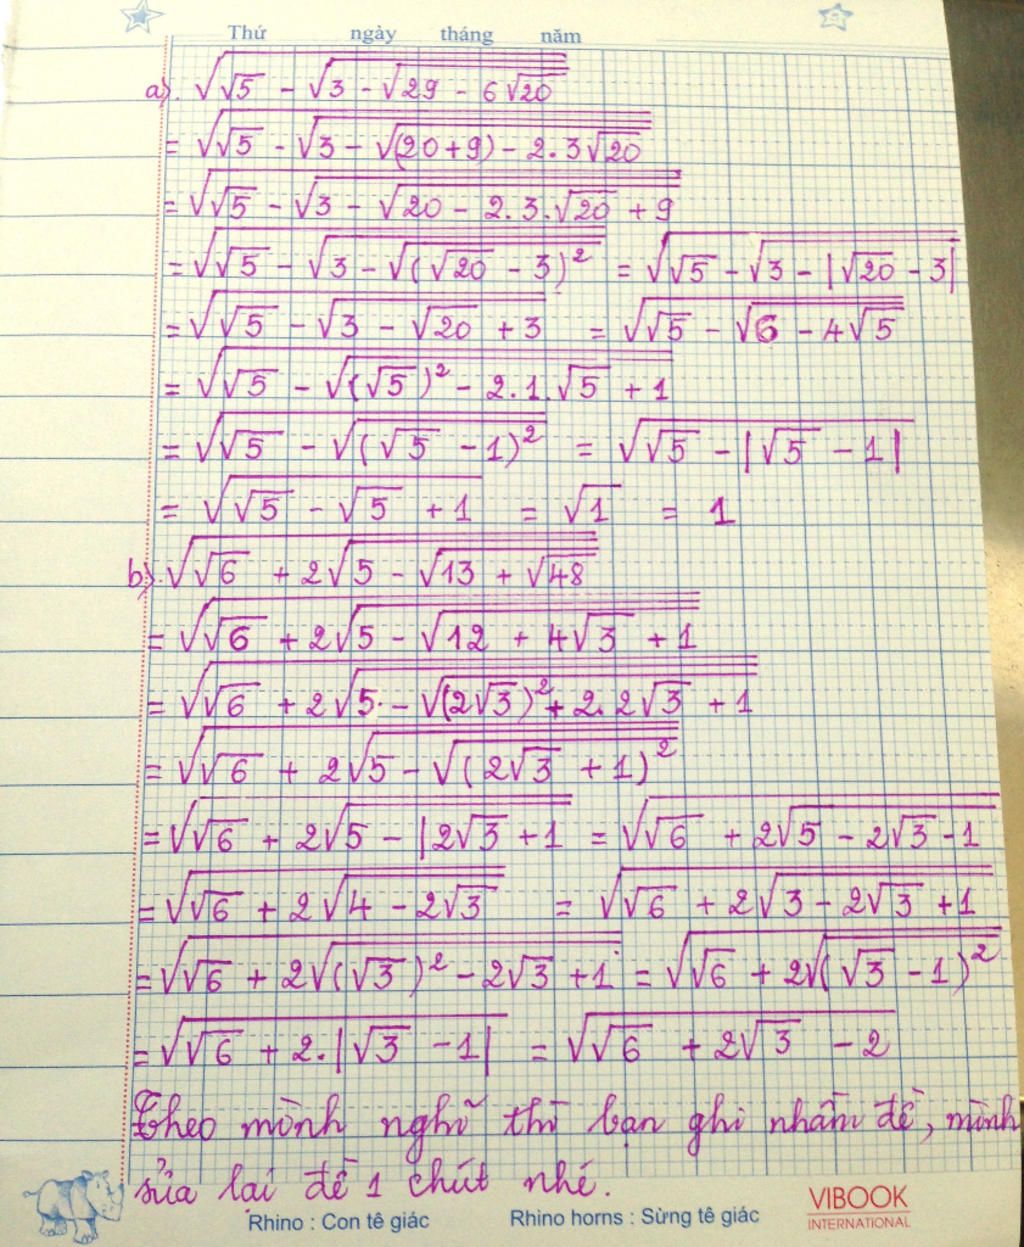 Thứ ngày tháng năm
a). √(√5 - √(3 - √(29 - 6√20)))
= √(√5 - √(3 - √((20+9) - 2.3√20)))
= √(√5 - √(3 - √(20 - 2.3.√20 + 9)))
= √(√5 - √(3 - √((√20 - 3)²))) = √(√5 - √(3 - |√20 - 3|))
= √(√5 - √(3 - √20 + 3)) = √(√5 - √(6 - 4√5))
= √(√5 - √((√5)² - 2.1.√5 + 1))
= √(√5 - √((√5 - 1)²)) = √(√5 - |√5 - 1|)
= √(√5 - √5 + 1) = √1 = 1
b). √(√6 + 2√(5 - √(13 + √48)))
= √(√6 + 2√(5 - √(12 + 4√3 + 1)))
= √(√6 + 2√(5. - √((2√3)² + 2.2√3 + 1)))
= √(√6 + 2√(5 - √((2√3 + 1)²)))
= √(√6 + 2√(5 - |2√3 + 1)) = √(√6 + 2√(5 - 2√3 - 1))
= √(√6 + 2√(4 - 2√3)) = √(√6 + 2√(3 - 2√3 + 1))
= √(√6 + 2√((√3)² - 2√3 + 1)) = √(√6 + 2√((√3 - 1)²))
= √(√6 + 2.|√3 - 1|) = √(√6 + 2√3 - 2)
Theo mình nghĩ thì bạn ghi nhầm đề, mình
sửa lại đề 1 chút nhé.
Rhino : Con tê giác Rhino horns : Sừng tê giác VIBOOK
INTERNATIONAL